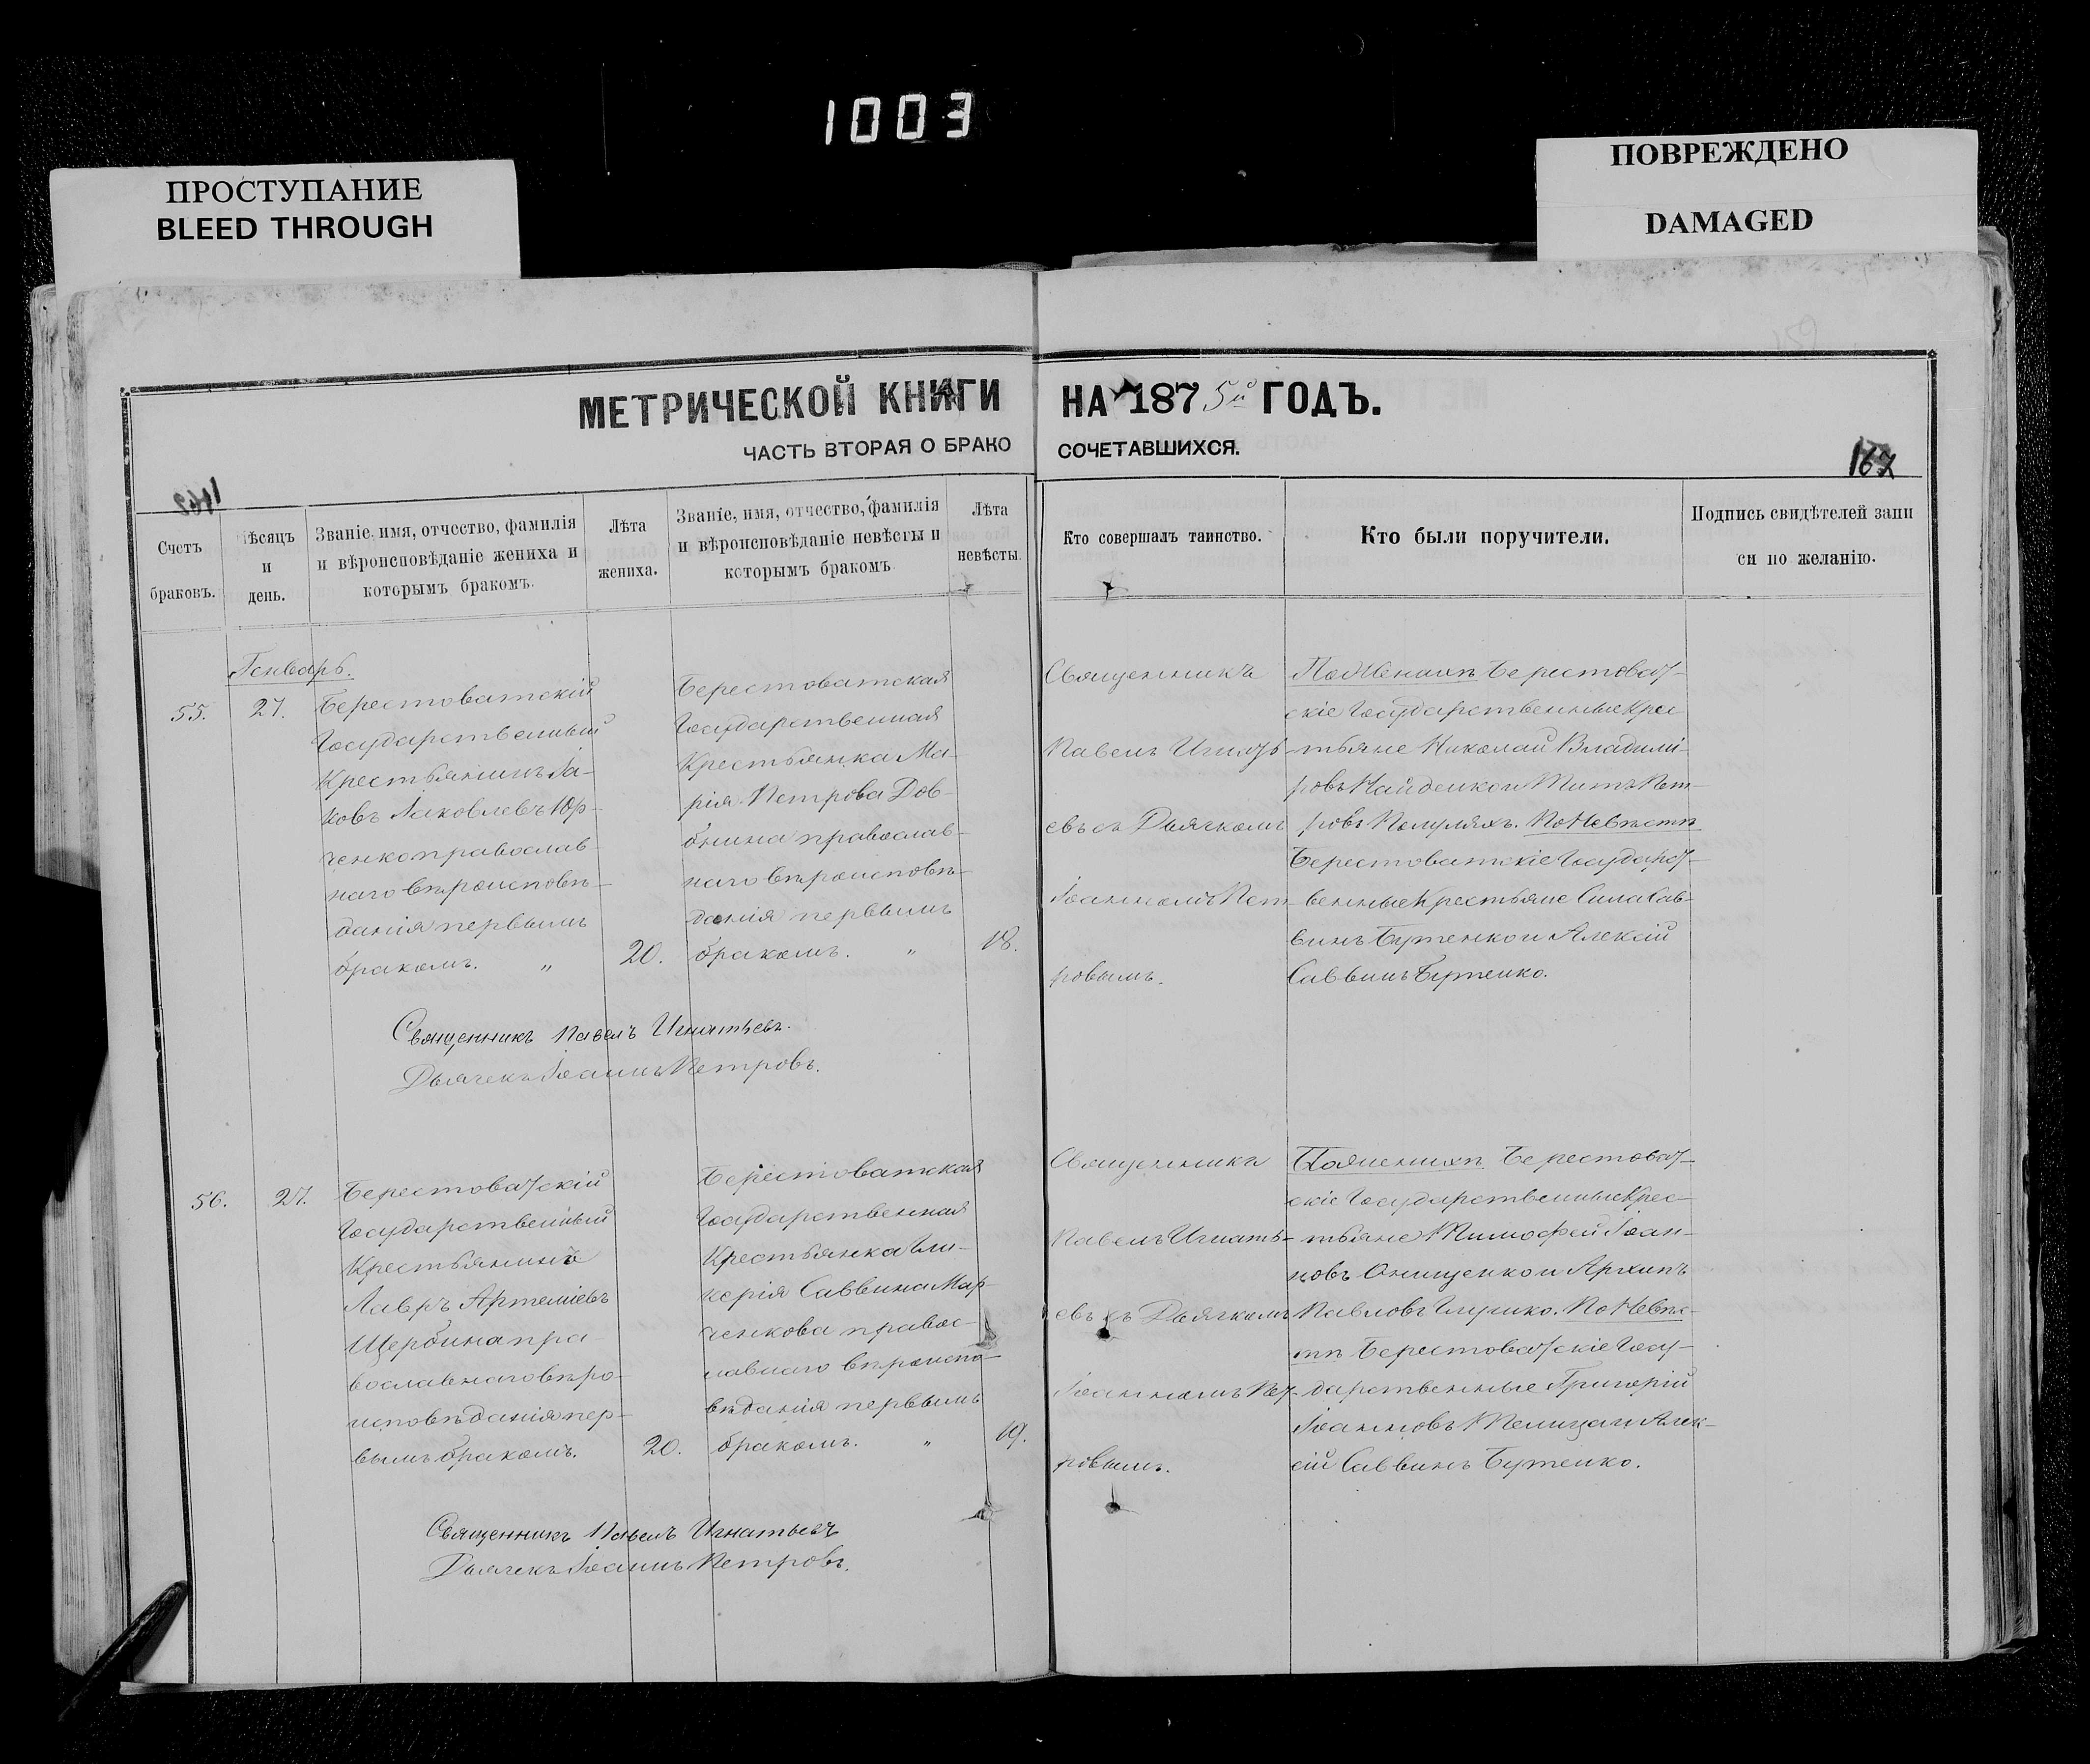 1003
ПРОСТУПАНИЕ
BLEED THROUGH
ПОВРЕЖДЕНО
DAMAGED
МЕТРИЧЕСКОЙ КНИГИ НА 1875й ГОДЪ.
ЧАСТЬ ВТОРАЯ О БРАКО СОЧЕТАВШИХСЯ.
167
Счетъ
браковъ.
Мѣсяцъ
и
день.
Званіе, имя, отчество, фамилія
и вѣроисповѣданіе жениха и
которымъ бракомъ.
Лѣта
жениха.
Званіе, имя, отчество, фамилія
и вѣроисповѣданіе невѣсты и
которымъ бракомъ
Лѣта
невѣсты.
Кто совершалъ таинство.
Кто были поручители.
Подпись свидѣтелей запи
си по желанію.
Генварь.
55.
27.
Берестоватскій
Государственный
Крестьянинъ Іа-
ковъ Іаковлевъ Юр-
ченко православ-
наго вѣроисповѣ-
данія первымъ
бракомъ. „
20.
Берестоватская
Государственная
Крестьянка Ма-
рія Петрова Дов-
бнина православ-
наго вѣроисповѣ-
данія первымъ
бракомъ. „
18.
Священникъ
Павелъ Игнать-
евъ съ Дьячкомъ
Іоанномъ Пет-
ровымъ.
По Женихѣ Берестоват-
скіе Государственные Крес
тьяне Николай Владимі-
ровъ Найденко и Титъ Пет-
ровъ По Невѣстѣ
Берестоватскіе Государст-
венные Крестьяне Сила Сав-
винъ Бутенко и Алексій
Саввинъ Бутенко.
Священникъ Павелъ Игнатьевъ.
Дьячекъ Іоаннъ Петровъ.
56.
27.
Берестоватскій
Государственный
Крестьянинъ
Лавръ Артеміевъ
Щербина пра
вославнаго вѣро-
исповѣданія пер-
вымъ бракомъ.
20.
Берестоватская
Государственная
Крестьянка Гли-
керія Саввина Мар-
ченкова правос-
лавнаго вѣроиспо-
вѣданія первымъ
бракомъ. „
19.
Священникъ
Павелъ Игнать-
евъ съ Дьячкомъ
Іоанномъ Пет-
ровымъ.
По Женихѣ Берестоват-
скіе Государственные Крес-
тьяне Тимофей Іоан-
новъ Онищенко и Архипъ
Павловъ Глушко. По Невѣс-
тѣ Берестоватскіе Госу-
дарственные Григорій
Іоанновъ и Алек-
сій Саввинъ Бутенко.
Священникъ Павелъ Игнатьевъ
Дьячекъ Іоаннъ Петровъ.